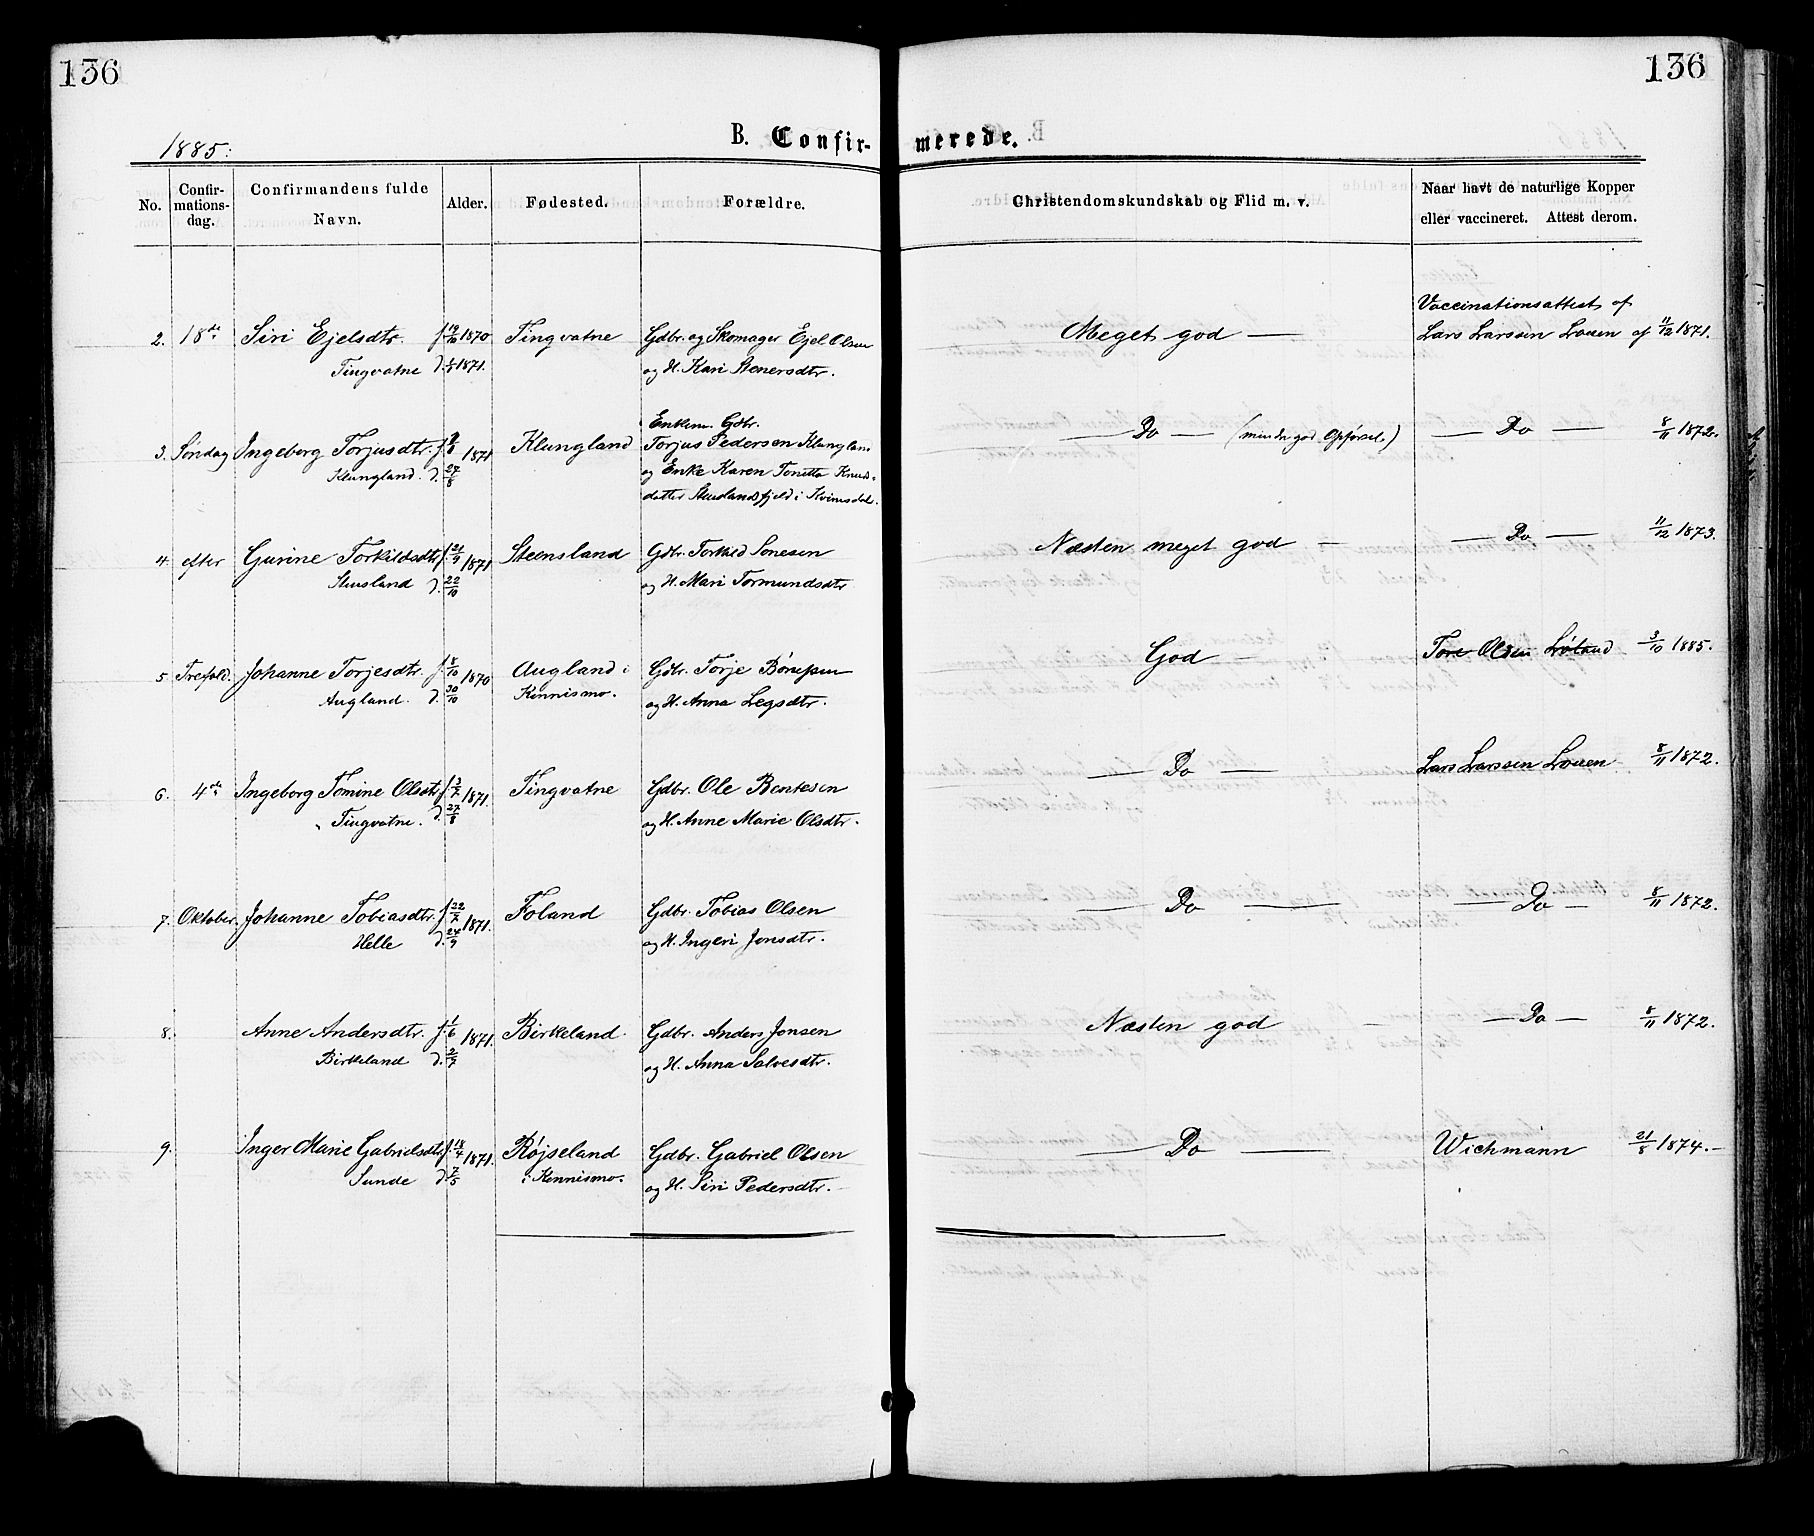 136
136
1885:
B. Confir-
merede.
No.
Confir-
mations-
dag.
Confirmandens fulde
Navn.
Alder.
Fødested.
Forældre.
Christendomskundskab og Flid m. v.
Naar havt de naturlige Kopper
eller vaccineret. Attest derom.
2. 18de Siri Ejelsdtr. f. 19/10 1870 Tingvatne Gdbr. og Skomager Ejel Olsen Meget god — Vaccinationsattest af
Lars Larssen Louen af 11/12 1871.
Tingvatne D. 1871. og H. Kari Stenersdtr.
Enkem. Gdbr.
3. Søndag Ingeborg Torjusdtr. f. 1871 Klungland Torjus Pedersen Klungland — Do — (mindre god Opførsel.) — Do — 8/11 1872.
Klungland. D. 27/8 og Enke Karen Tonetta Knuds-
datter Stuslandsfjeld i Kvinesdal.
4. efter Gurine Torkildsdtr. f. 21/9 1871 Steensland Gdbr. Torkild Sonesen Næsten meget god — — Do — 11/12 1873.
Stensland D. 22/10 og H. Mari Tormundsdtr
5. Trefold. Johanne Torjesdtr. f. 1/10 1870 Augland i Gdbr. Torje Børufsen God — Tore Olsen Løland — 3/10 1885.
Augland. D. 30/10 Kennismo. og H. Anna Legsdtr.
6. 4de Ingeborg Tomine Olsdtr f. 3/7 1871. Tingvatne Gdbr. Ole Bentesen — Do — Lars Larssen Louen 8/11 1872.
Tingvatne. D. 27/8 og H. Anne Marie Olsdtr.
7. Oktober. Johanne Tobiasdtr. f. 22/7 1871. Foland Gdbr. Tobias Olsen — Do — — Do — 8/11 1872.
Helle D. 24/9 og H. Ingeri Jonsdtr.
8. Anne Andersdtr. f. 1/6 1871. Birkeland. Gdbr. Anders Jonsen Næsten god — — Do — 8/11 1872.
Birkeland D. 2/7 og H. Anna Salvesdtr.
9. Inger Marie Gabrielsdtr. f. 14/4 1871. Røjseland Gdbr. Gabriel Olsen — Do — Wichmann 21/8 1874.—
Sunde D. 7/5 i Kennismo. og H. Siri Pedersdtr.